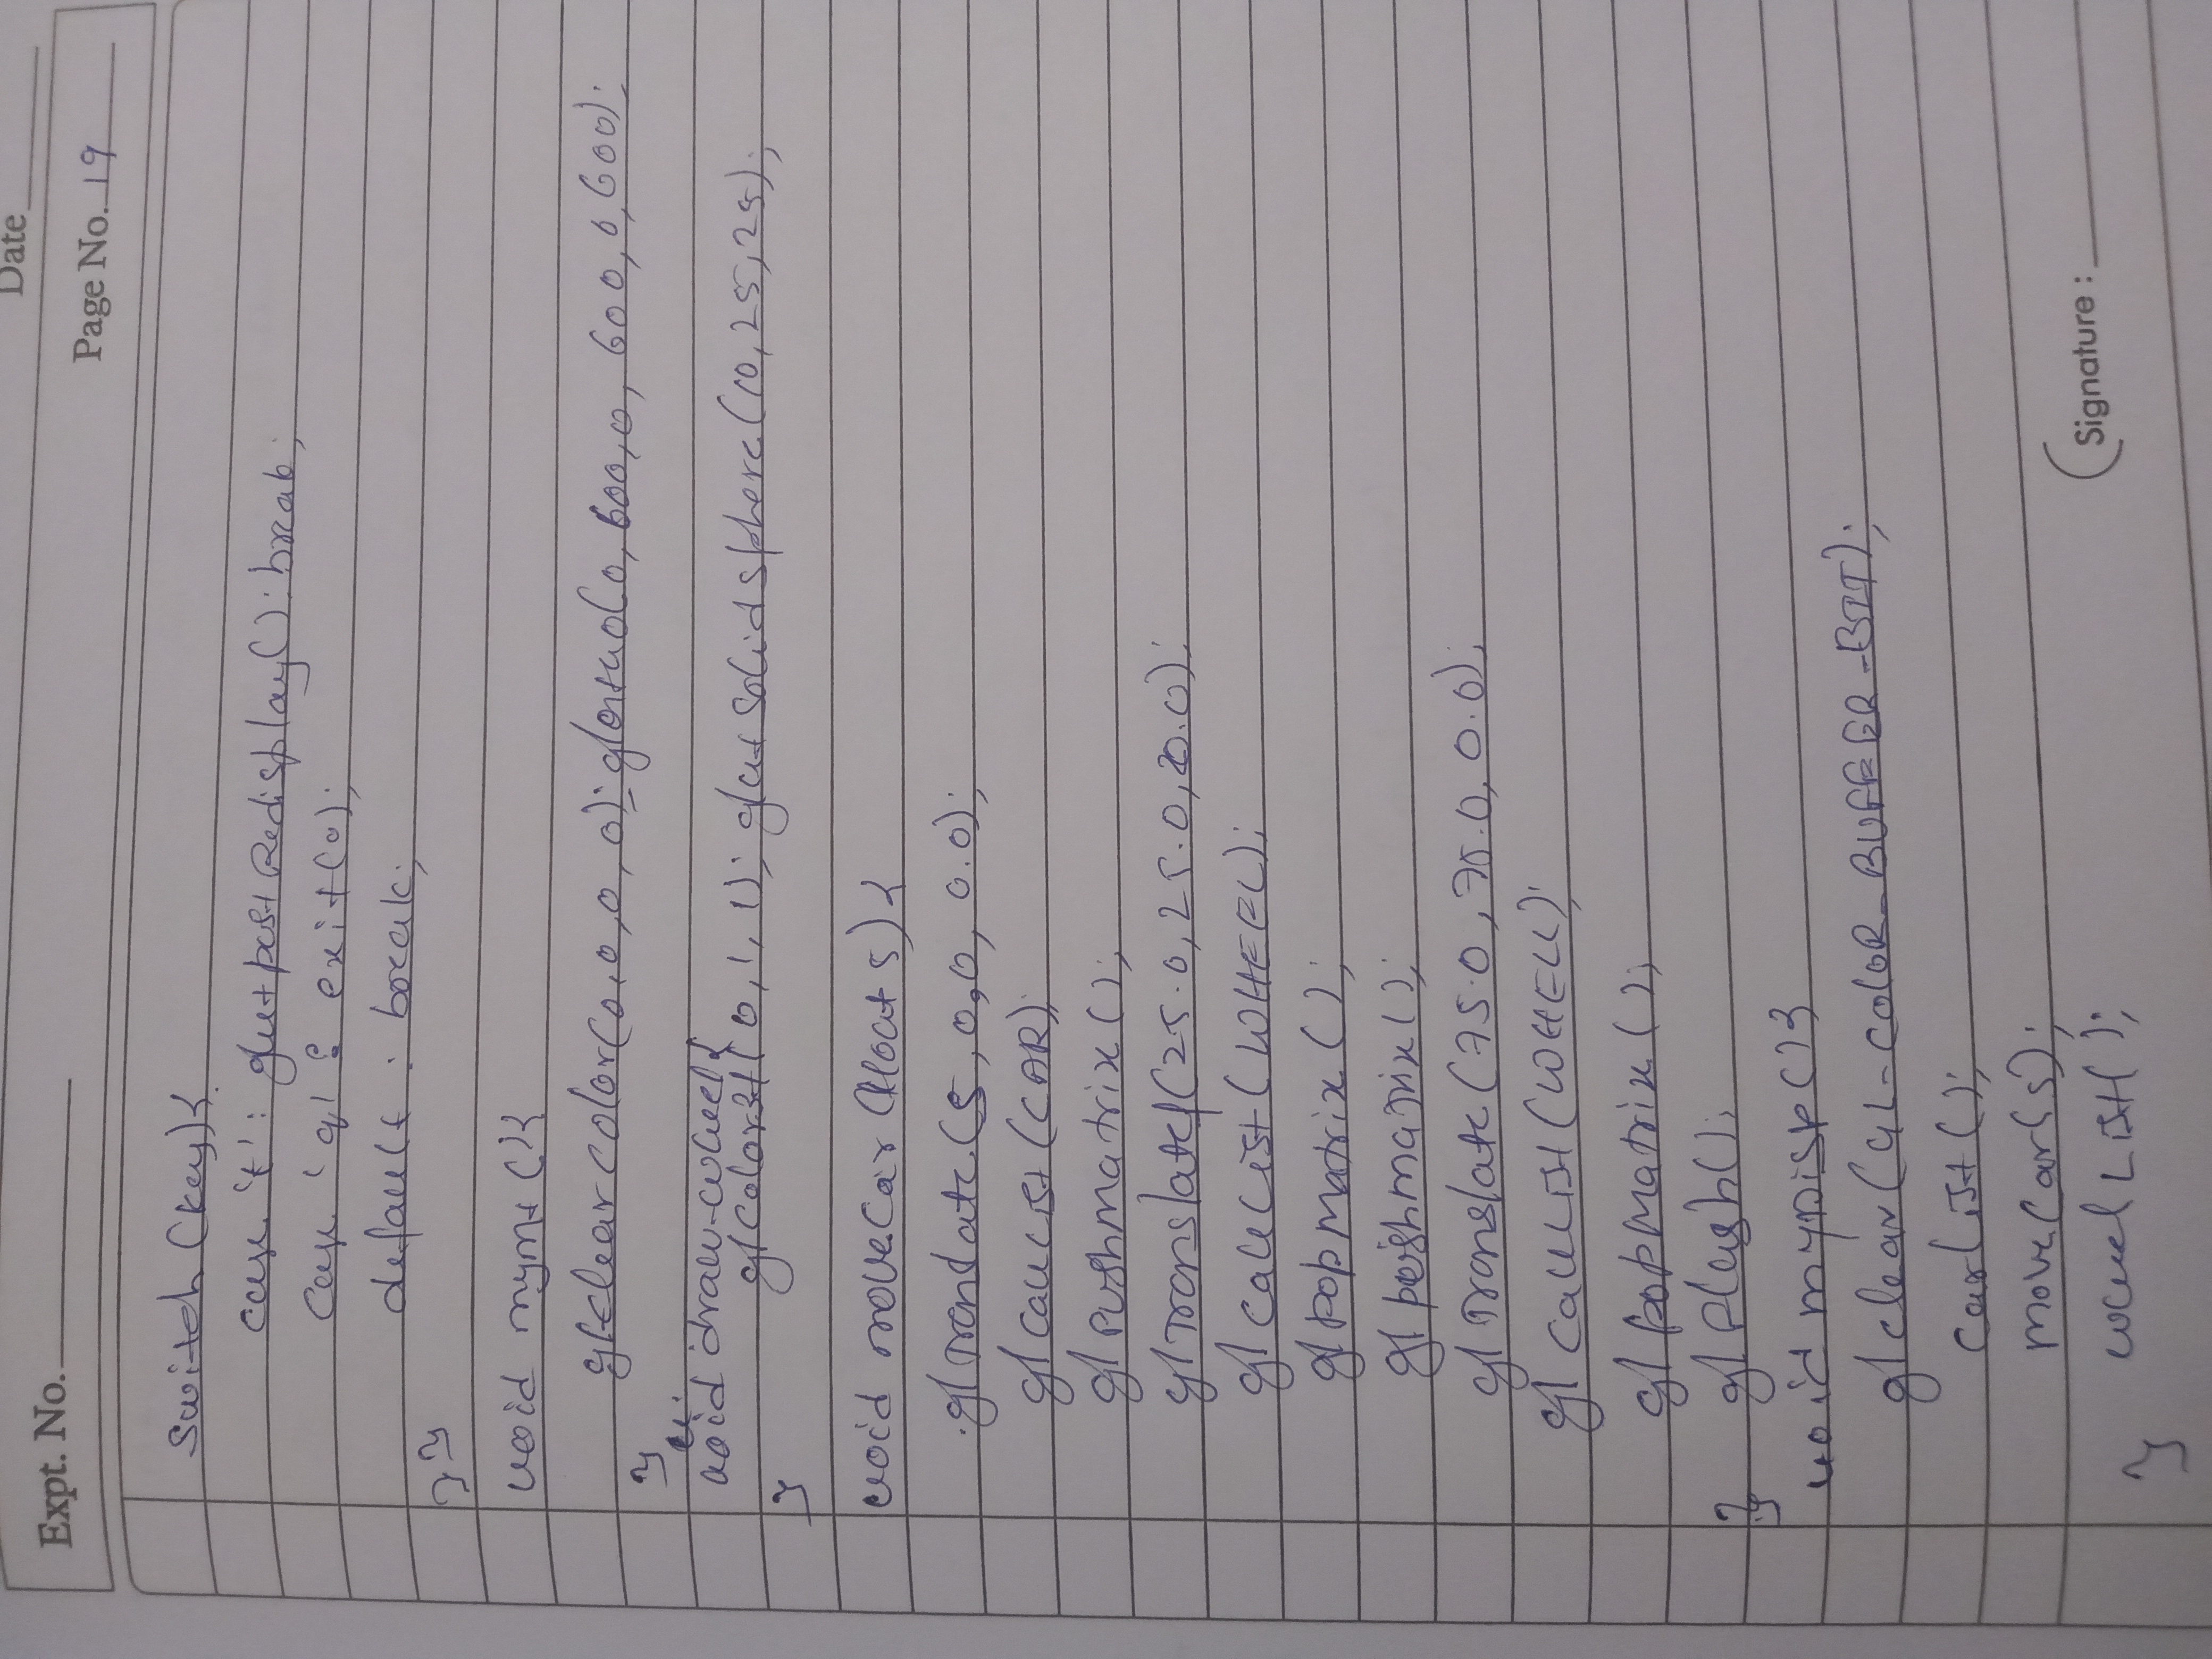 Date
Expt. No.
Page No. 19
switch (key) {
case 't' : glutpostRedisplay(); break;
case 'q' : exit(0);
default : break;
}}
void myInt () {
glclearcolor(0,0,0,0); glortho(0,600,0,600,0,600);
}
void draw-wheel() {
glcolor3f(0,1,1); glutsolidsphere(10,25,25);
}
void moveCar (float s) {
glTranslate(s,0,0,0.0);
glcallist(CAR);
glPushmatrix();
glTranslatef(25.0,25.0,0.0);
glCallList(WHEEL);
glpopmatrix();
glpushmatrix();
glTranslate(75.0,75.0,0.0);
glCallList(WHEEL);
glpopMatrix();
glFlush();
}
void myDisp() {
glclear(GL-COLOR-BUFFER-BIT);
carlist();
moveCar(s);
wheelList();
}
(Signature :